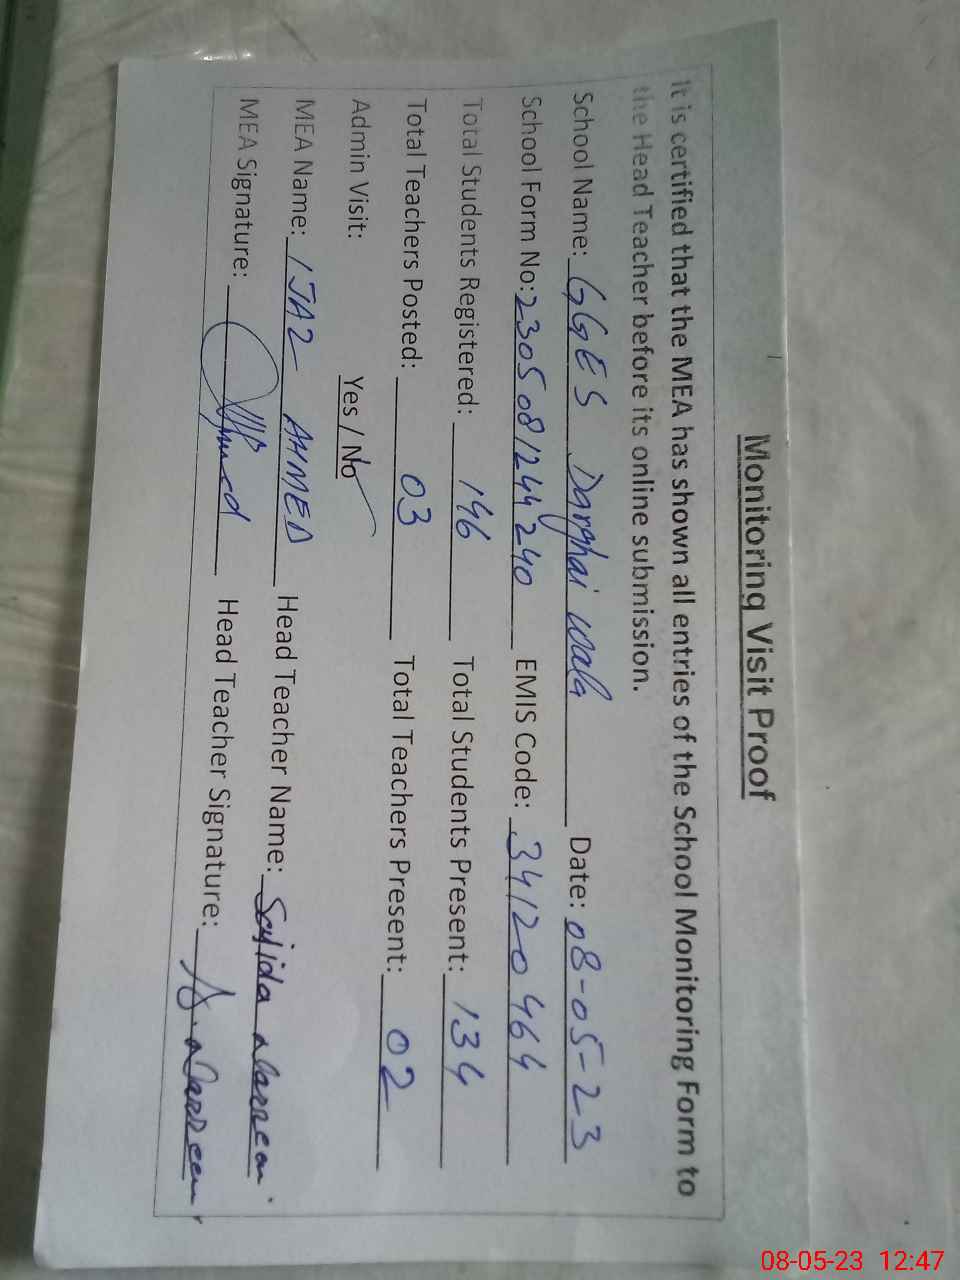 Monitoring Visit Proof
It is certified that the MEA has shown all entries of the School Monitoring Form to
the Head Teacher before its online submission.
School Name: GGES Darghai wala Date: 08-05-23
School Form No: 230508124 4240 EMIS Code: 34120464
Total Students Registered: 146 Total Students Present: 134
Total Teachers Posted: 03 Total Teachers Present: 02
Admin Visit: Yes / No
MEA Name: IJAZ AHMED Head Teacher Name: Sajida Nasreen
MEA Signature: Head Teacher Signature: S. Nasreen
08-05-23 12:47